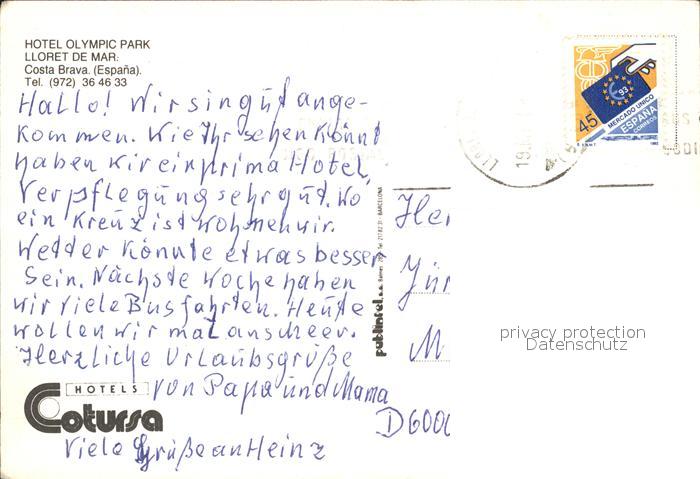 HOTEL OLYMPIC PARK
LLORET DE MAR:
Costa Brava. (España).
Tel. (972) 36 46 33
Hallo! Wir sin gut ange-
kommen. Wie Ihr sehen könnt
haben wir ein prima Hotel,
Verpflegung sehr gut. Wo
ein Kreuz ist wohnen wir.
Wetter könnte etwas besser
sein. Nächste Woche haben
wir viele Busfahrten. Heute
wollen wir mal ans Meer.
Herzliche Urlaubsgrüße
von Papa und Mama
Viele Grüße an Heinz
HOTELS
Cotursa
publintel, s.a.
BARCELONA
45
93
MERCADO UNICO
ESPAÑA
CORREOS
19
Her
Jür
M
D 6000
privacy protection
Datenschutz